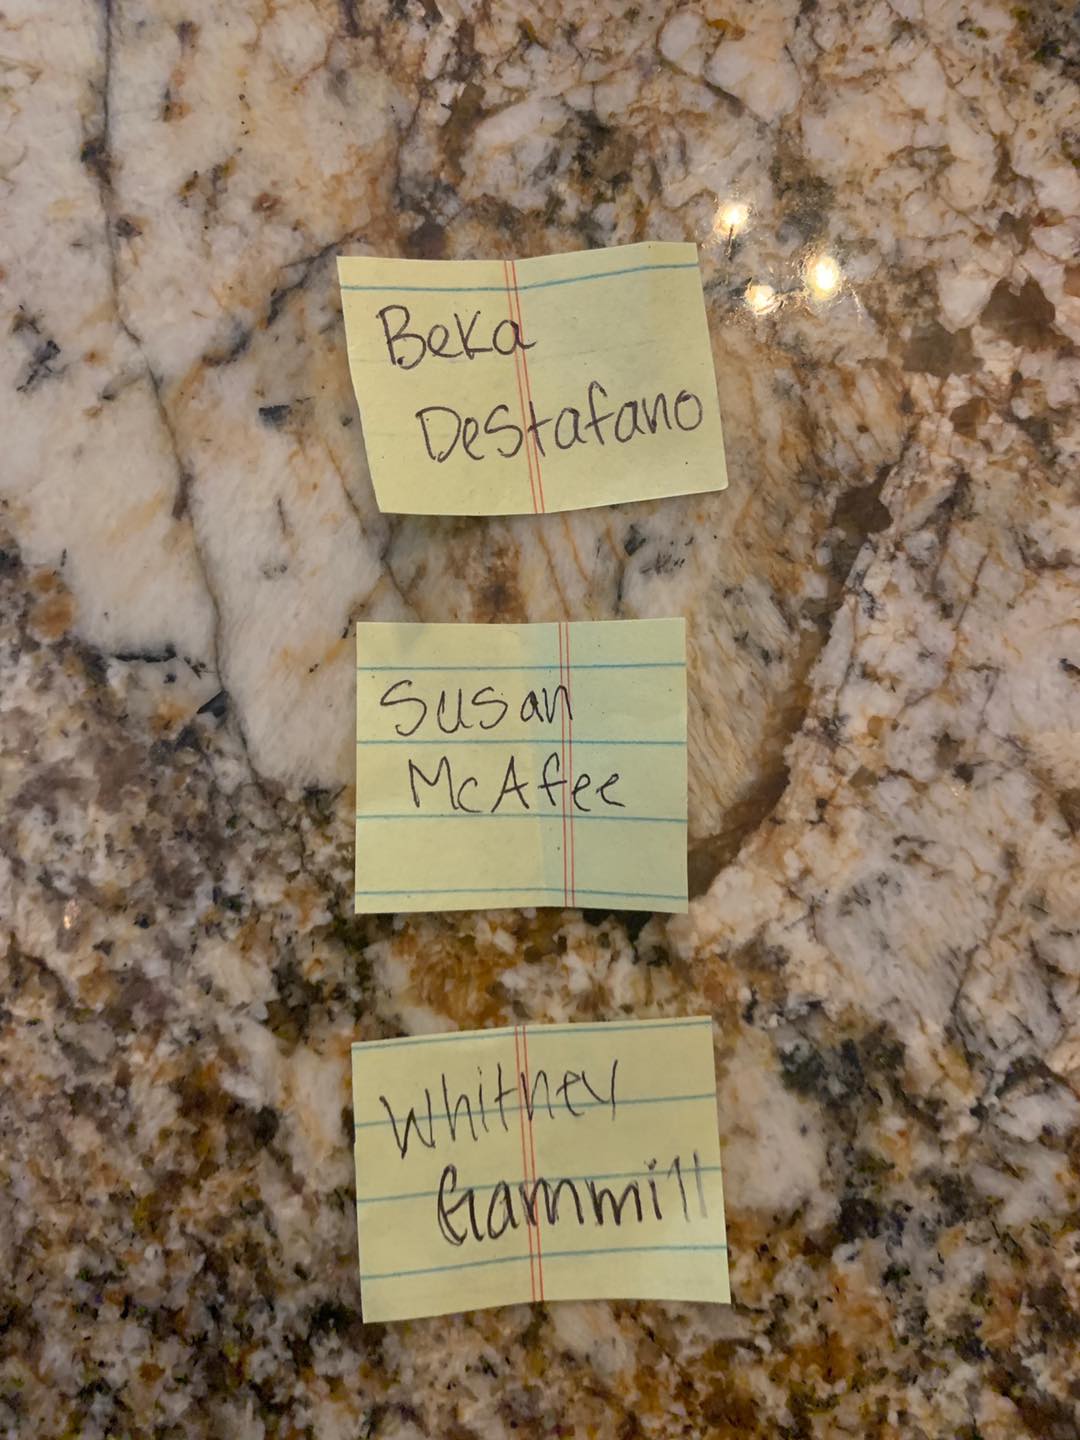 Beka
DeStafano
Susan
McAfee
Whitney
Gammill